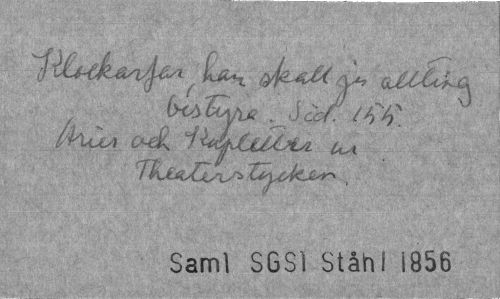 Klockarfar, han skall ju allting
bestyra. Sid. 155.
Arier och Kupletter ur
Theaterstycken.
Saml SGSl Ståhl 1856